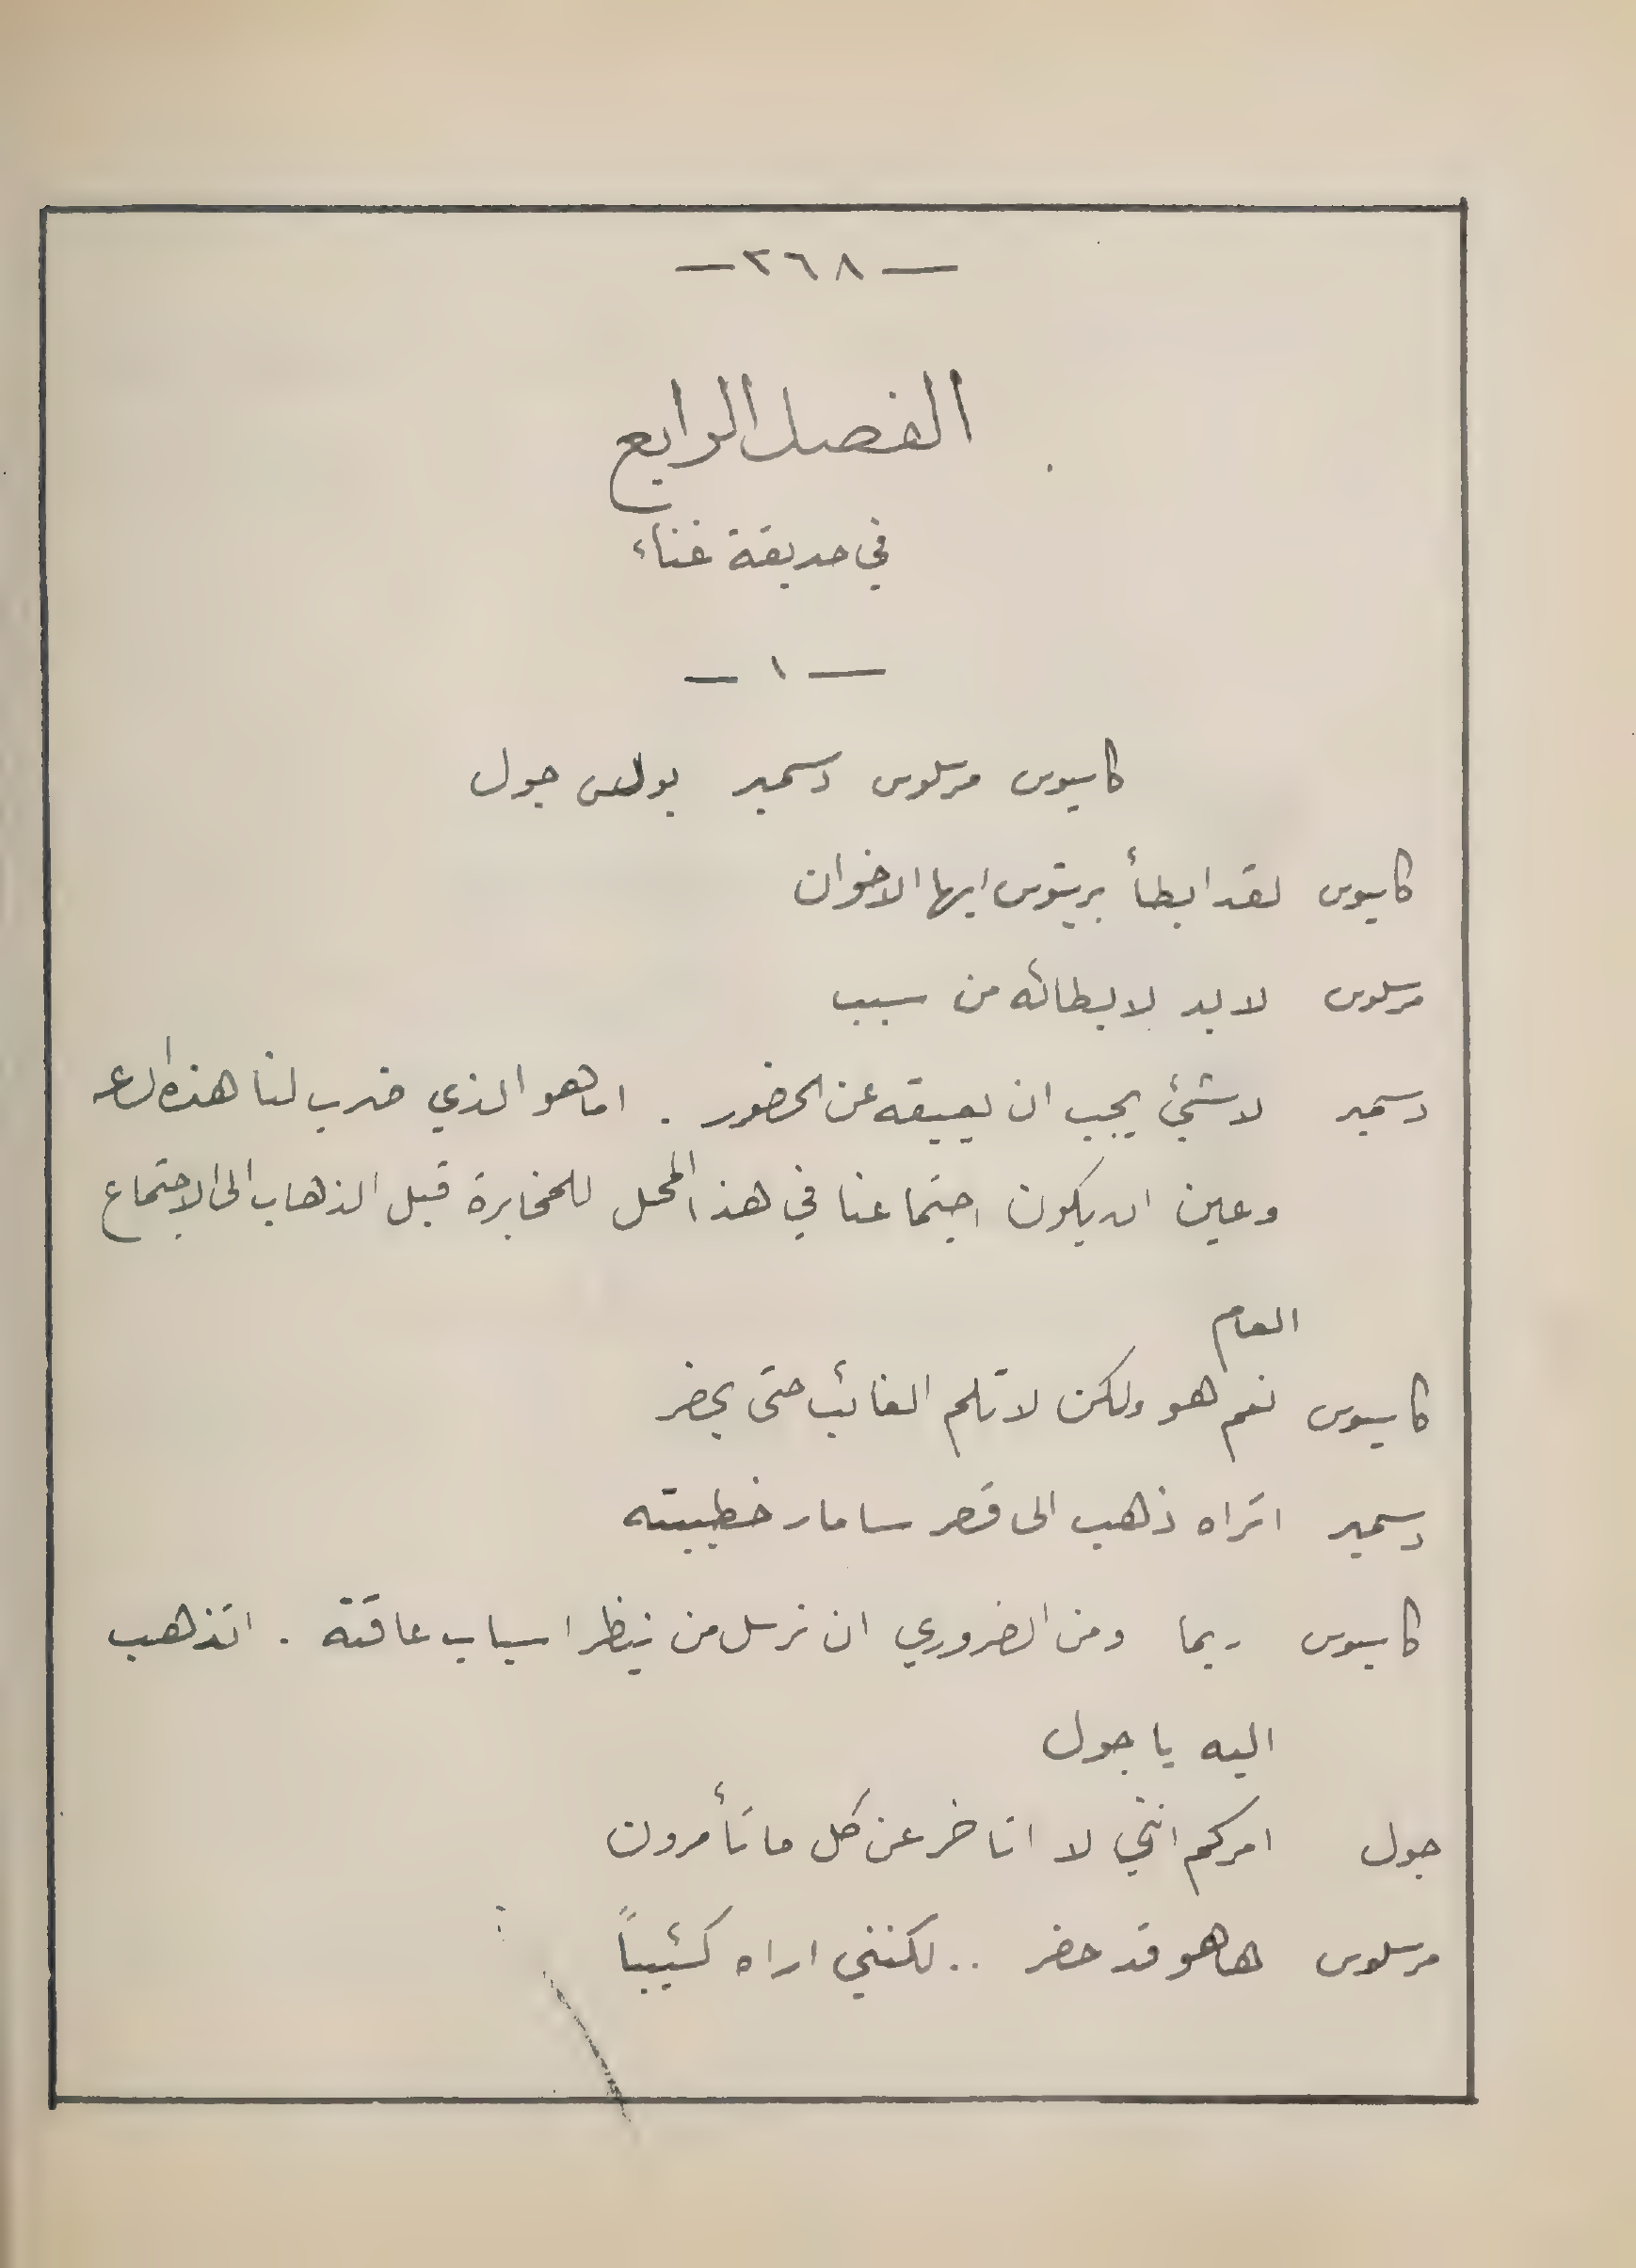 — ٣٦٨ —
الفصل الرابع
في حديقة غناء
— ١ —
كاسيوس مرسلوس دسمير بولس جول
كاسيوس لقد ابطأ بريتوس ايها الاخوان
مرسلوس لا بد لابطائه من سبب
دسمير لا شئ يجب ان يعيقه عن الحضور . اما هو الذي ضرب لنا هذه
وعين ان يكون اجتماعنا في هذا المحل للمخابرة قبل الذهاب الى الاجتماع
العام
كاسيوس نعم هو ولكن لا تلم الغائب حتى يحضر
دسمير اتراه ذهب الى قصر سامار خطيبته
كاسيوس ربما ومن الضروري ان نرسل من ينظر اسباب عاقته . اتذهب
اليه يا جول
جول امركم انني لا اتاخر عن كل ما تأمرون
مرسلوس ها هو قد حضر .. لكنني اراه كئيباً